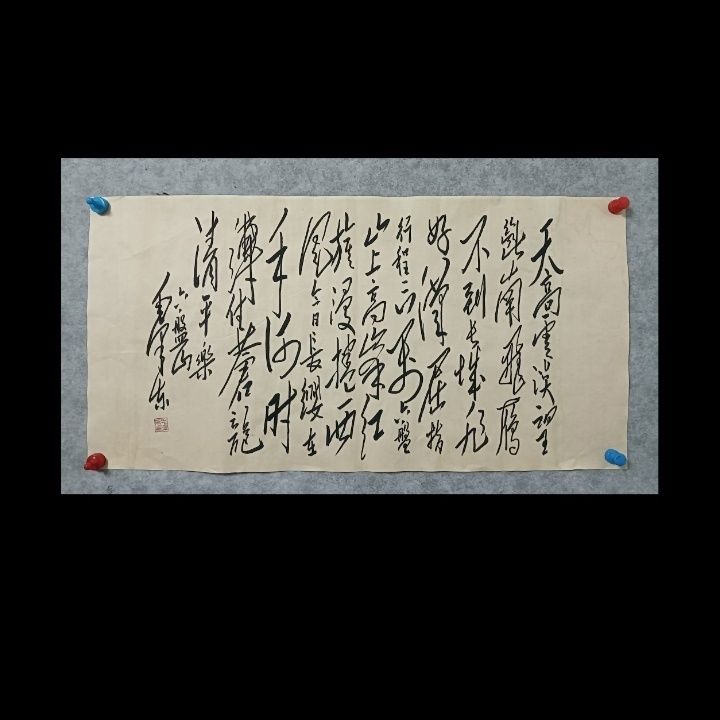 天高雲淡望
斷南飛雁
不到长城非
好漢屈指
行程二万六盤
山上高峰红
旗漫捲西
風今日長纓在
手何时
縛住蒼龍
清平樂
六盤山
毛澤东